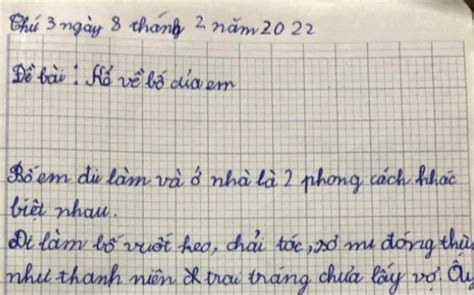 Thứ 3 ngày 8 tháng 2 năm 2022
Đề bài: Kể về bố của em
Bố em đi làm và ở nhà là 2 phong cách khác
biệt nhau.
Đi làm bố vuốt keo, chải tóc, sơ mi đóng thùng
như thanh niên trai tráng chưa lấy vợ. Ấy